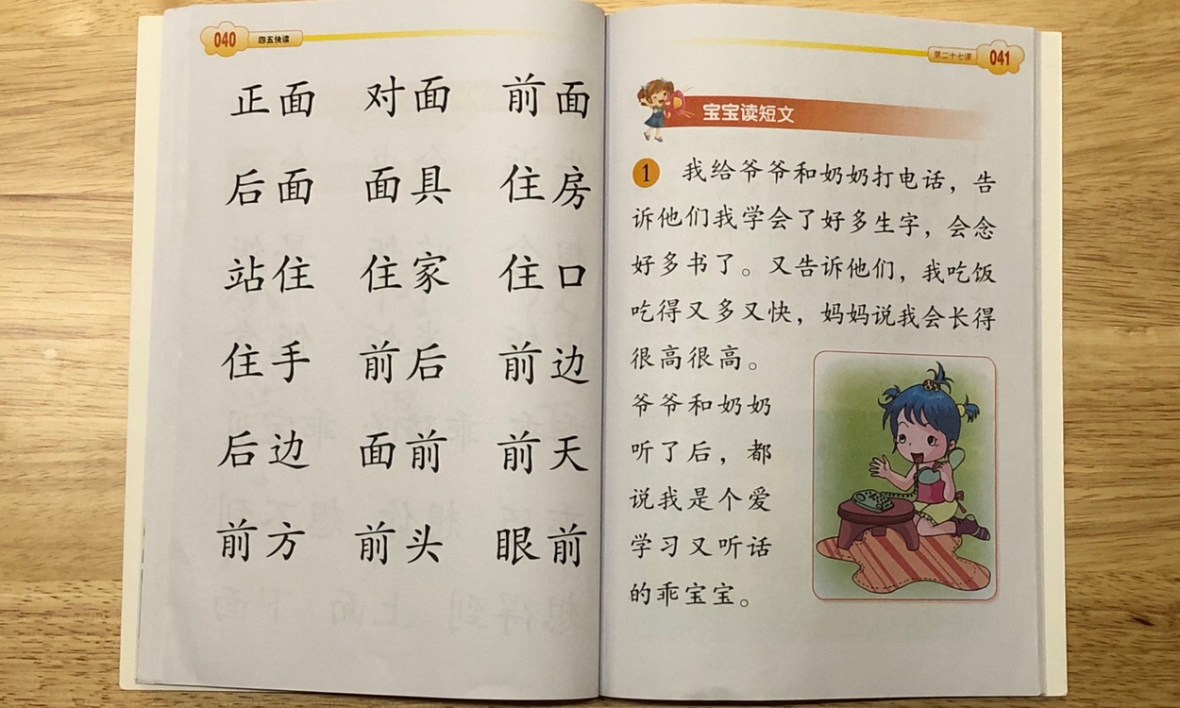 040 四五快读
正面 对面 前面
后面 面具 住房
站住 住家 住口
住手 前后 前边
后边 面前 前天
前方 前头 眼前
第二十七课 041
宝宝读短文
1 我给爷爷和奶奶打电话，告
诉他们我学会了好多生字，会念
好多书了。又告诉他们，我吃饭
吃得又多又快，妈妈说我会长得
很高很高。
爷爷和奶奶
听了后，都
说我是个爱
学习又听话
的乖宝宝。